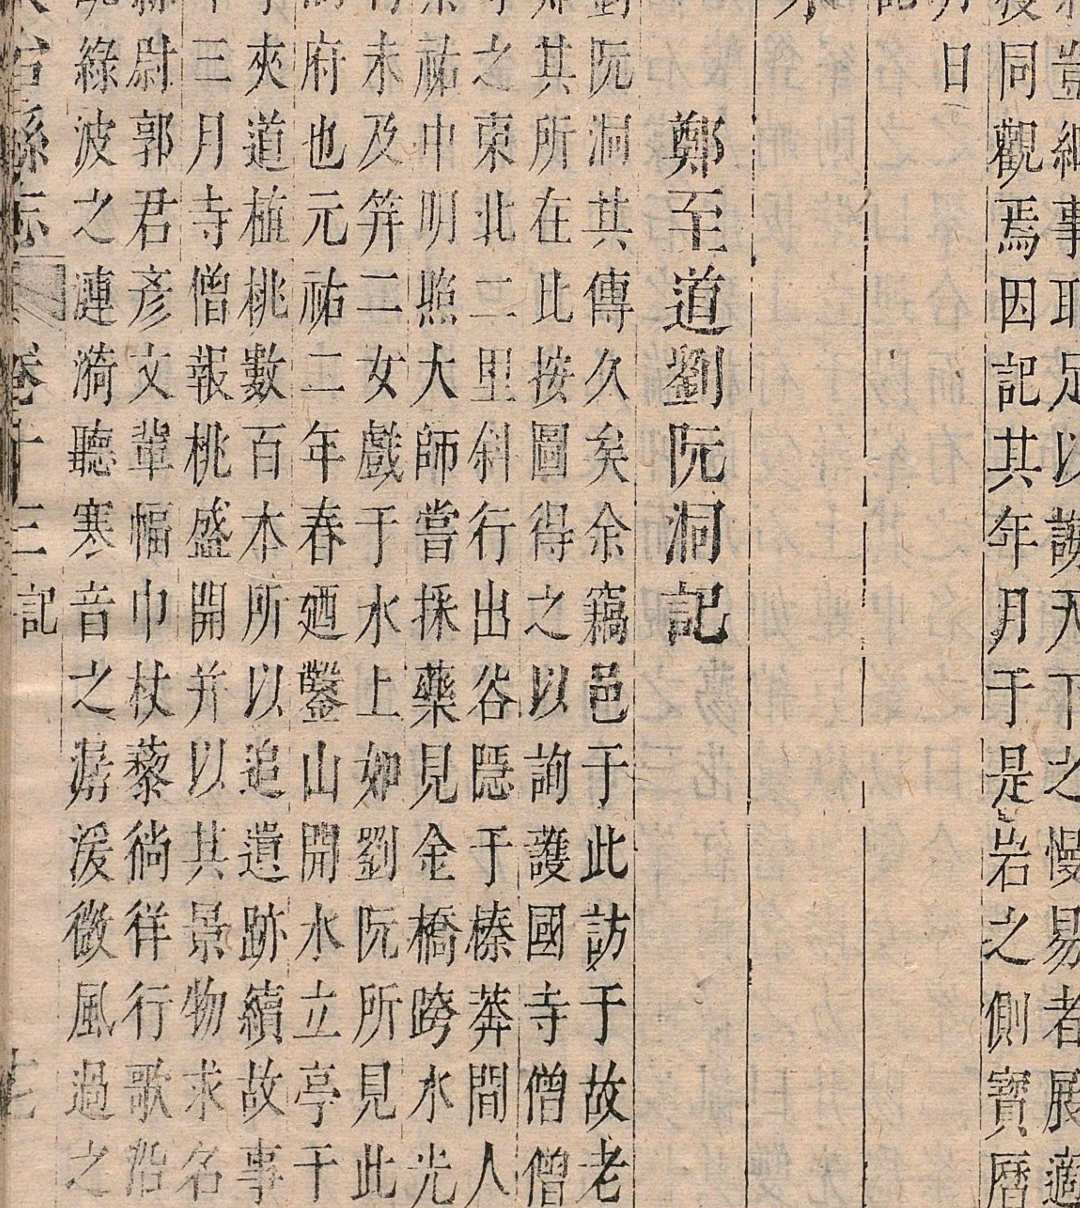 豈細事耶足以謝天下之慢易者展適
同觀焉因記其年月于是岩之側寶曆
月日
記
鄭至道劉阮洞記
劉阮洞其傳久矣余竊邑于此訪于故老
其所在比按圖得之以詢護國寺僧僧
之東北二里斜行出谷隱于榛莽間人
祐中明照大師嘗採藥見金橋跨水光
未及笄二女戲于水上如劉阮所見此
府也元祐二年春廼鑿山開水立亭于
夾道植桃數百本所以追遺跡續故事
三月寺僧報桃盛開并以其景物求名
縣尉郭君彥文輩幅巾杖藜徜徉行歌沿
綠波之漣漪聽寒音之潺湲微風過之
台縣志
卷十三
記